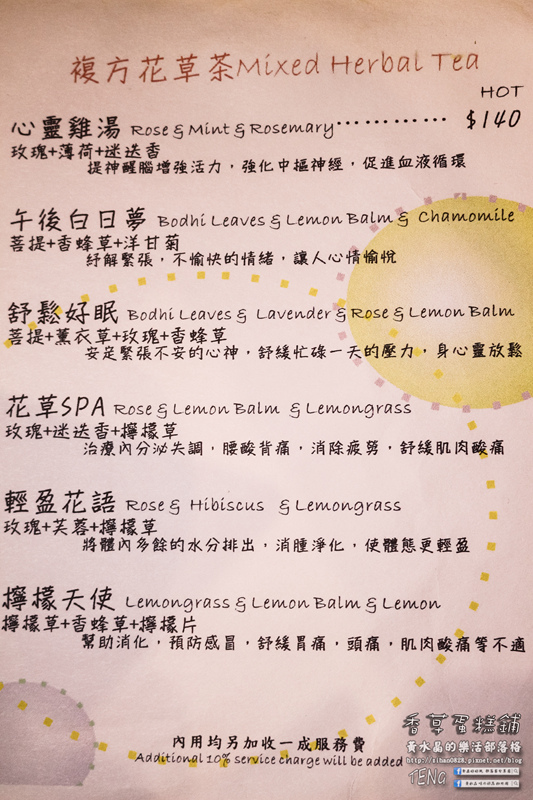 複方花草茶Mixed Herbal Tea
HOT
心靈雞湯 Rose & Mint & Rosemary………… $140
玫瑰+薄荷+迷迭香
提神醒腦增強活力，強化中摳神經，促進血液循環
午後白日夢 Bodhi Leaves & Lemon Balm & Chamomile
菩提+香蜂草+洋甘菊
紓解緊張，不愉快的情緒，讓人心情愉悅
舒鬆好眠 Bodhi Leaves & Lavender & Rose & Lemon Balm
菩提+薰衣草+玫瑰+香蜂草
安定緊張不安的心神，舒緩忙碌一天的壓力，身心靈放鬆
花草SPA Rose & Lemon Balm & Lemongrass
玫瑰+迷迭香+檸檬草
治療內分泌失調，腰酸背痛，消除疲勞，舒緩肌肉酸痛
輕盈花語 Rose & Hibiscus & Lemongrass
玫瑰+芙蓉+檸檬草
將體內多餘的水分排出，消腫淨化，使體態更輕盈
檸檬天使 Lemongrass & Lemon Balm & Lemon
檸檬草+香蜂草+檸檬片
幫助消化，預防感冒，舒緩胃痛，頭痛，肌肉酸痛等不適
內用均另加收一成服務費
Additional 10% service charge will be added
香草蛋糕鋪
黃水晶的樂活部落格
http://sihan0828.pixnet.net/blog
TENG